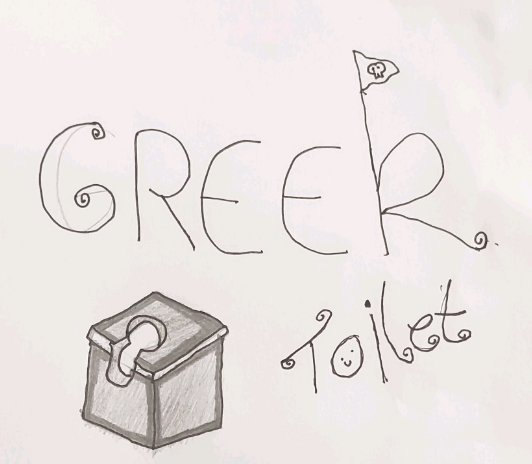 GREER
Toilet